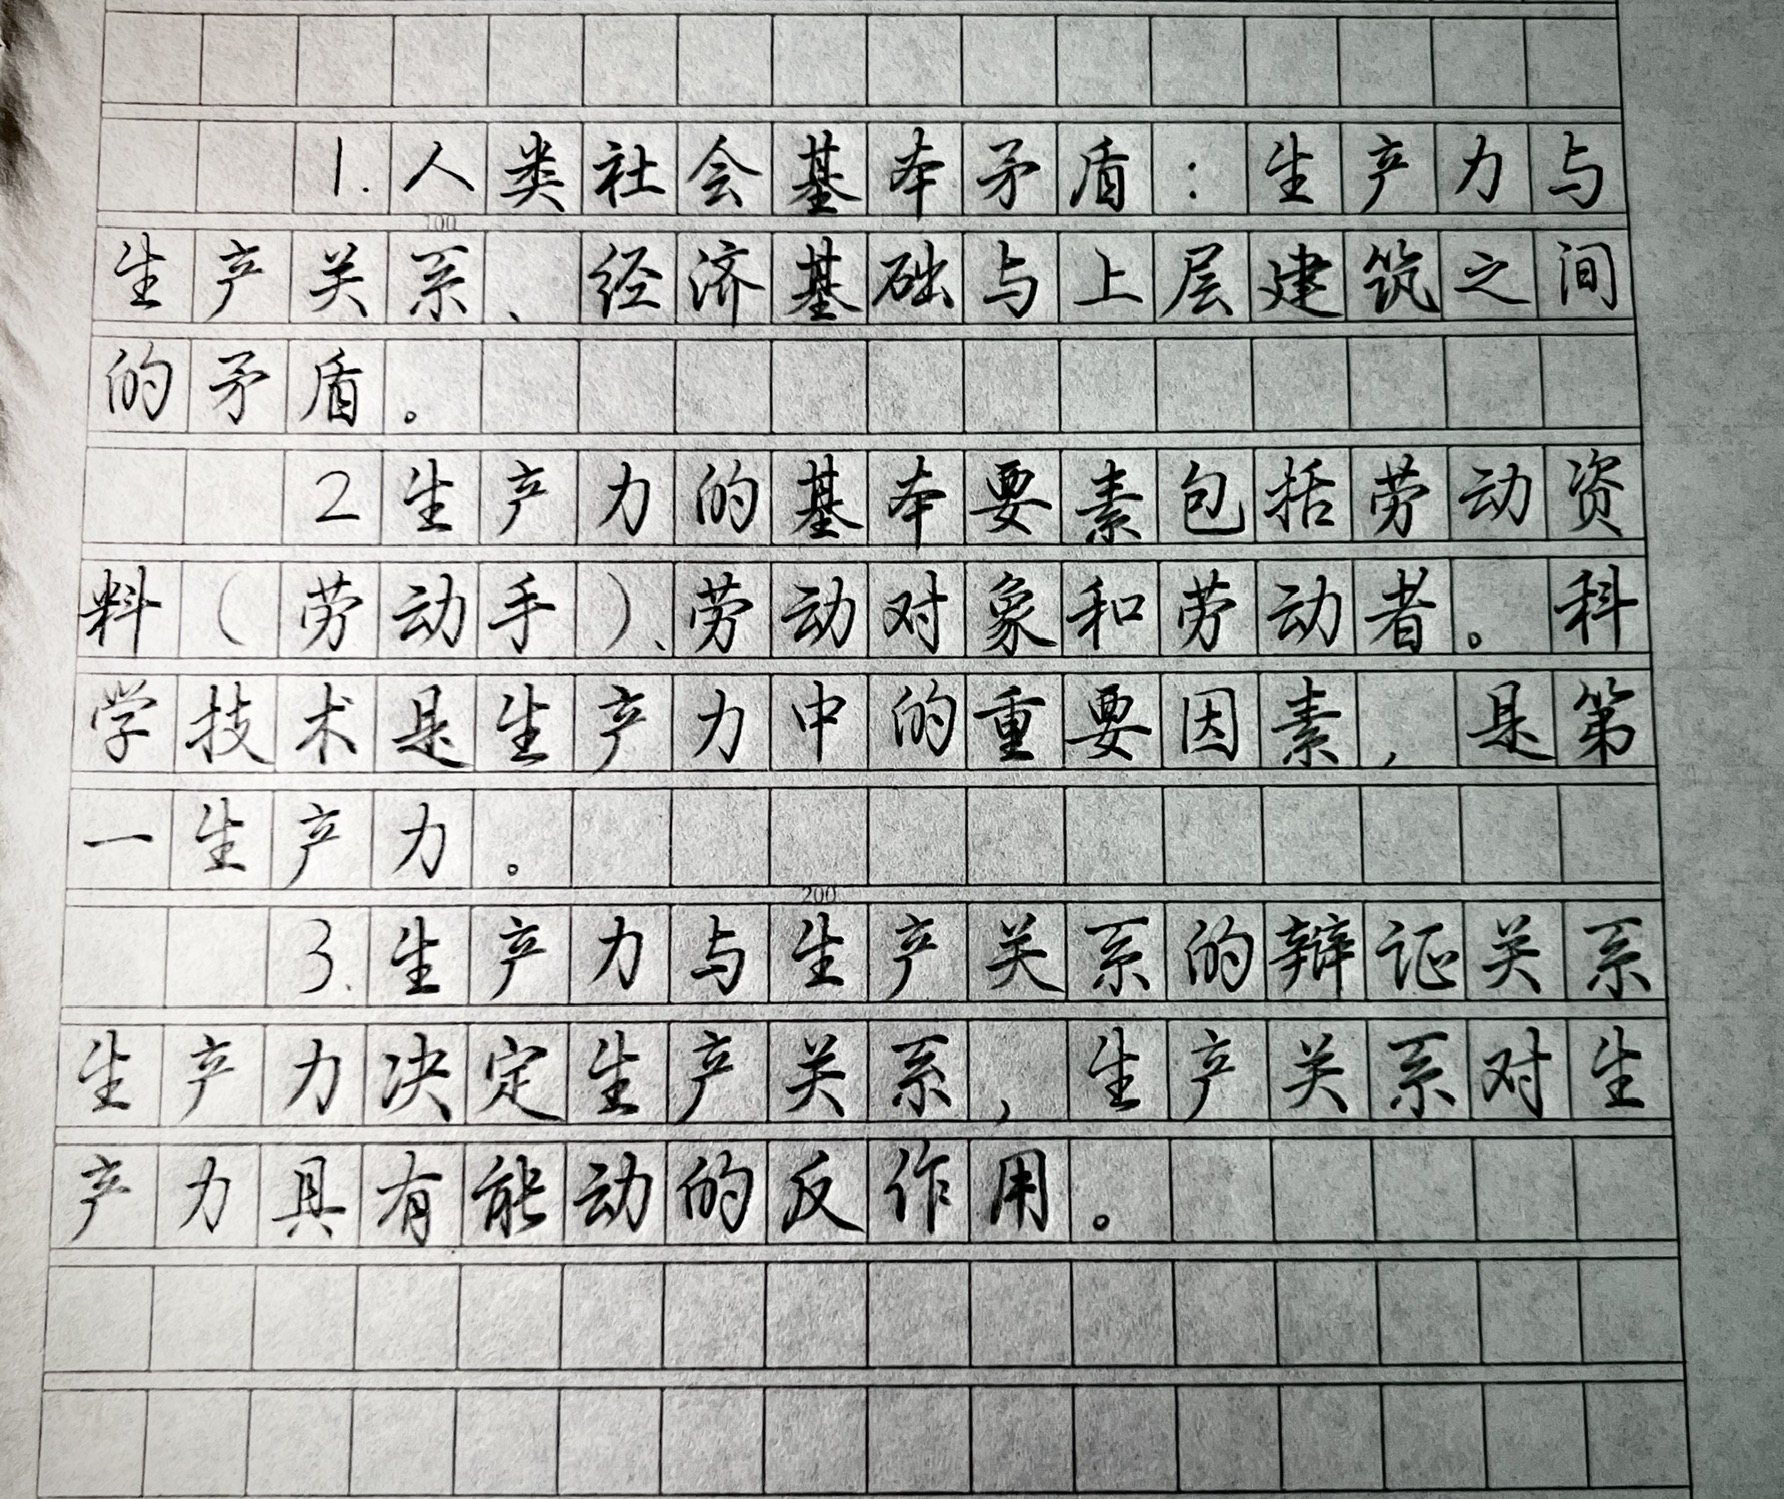 1.人类社会基本矛盾：生产力与
100
生产关系、经济基础与上层建筑之间
的矛盾。
2生产力的基本要素包括劳动资
料（劳动手）、劳动对象和劳动者。科
学技术是生产力中的重要因素，是第
一生产力。
200
3.生产力与生产关系的辩证关系
生产力决定生产关系，生产关系对生
产力具有能动的反作用。